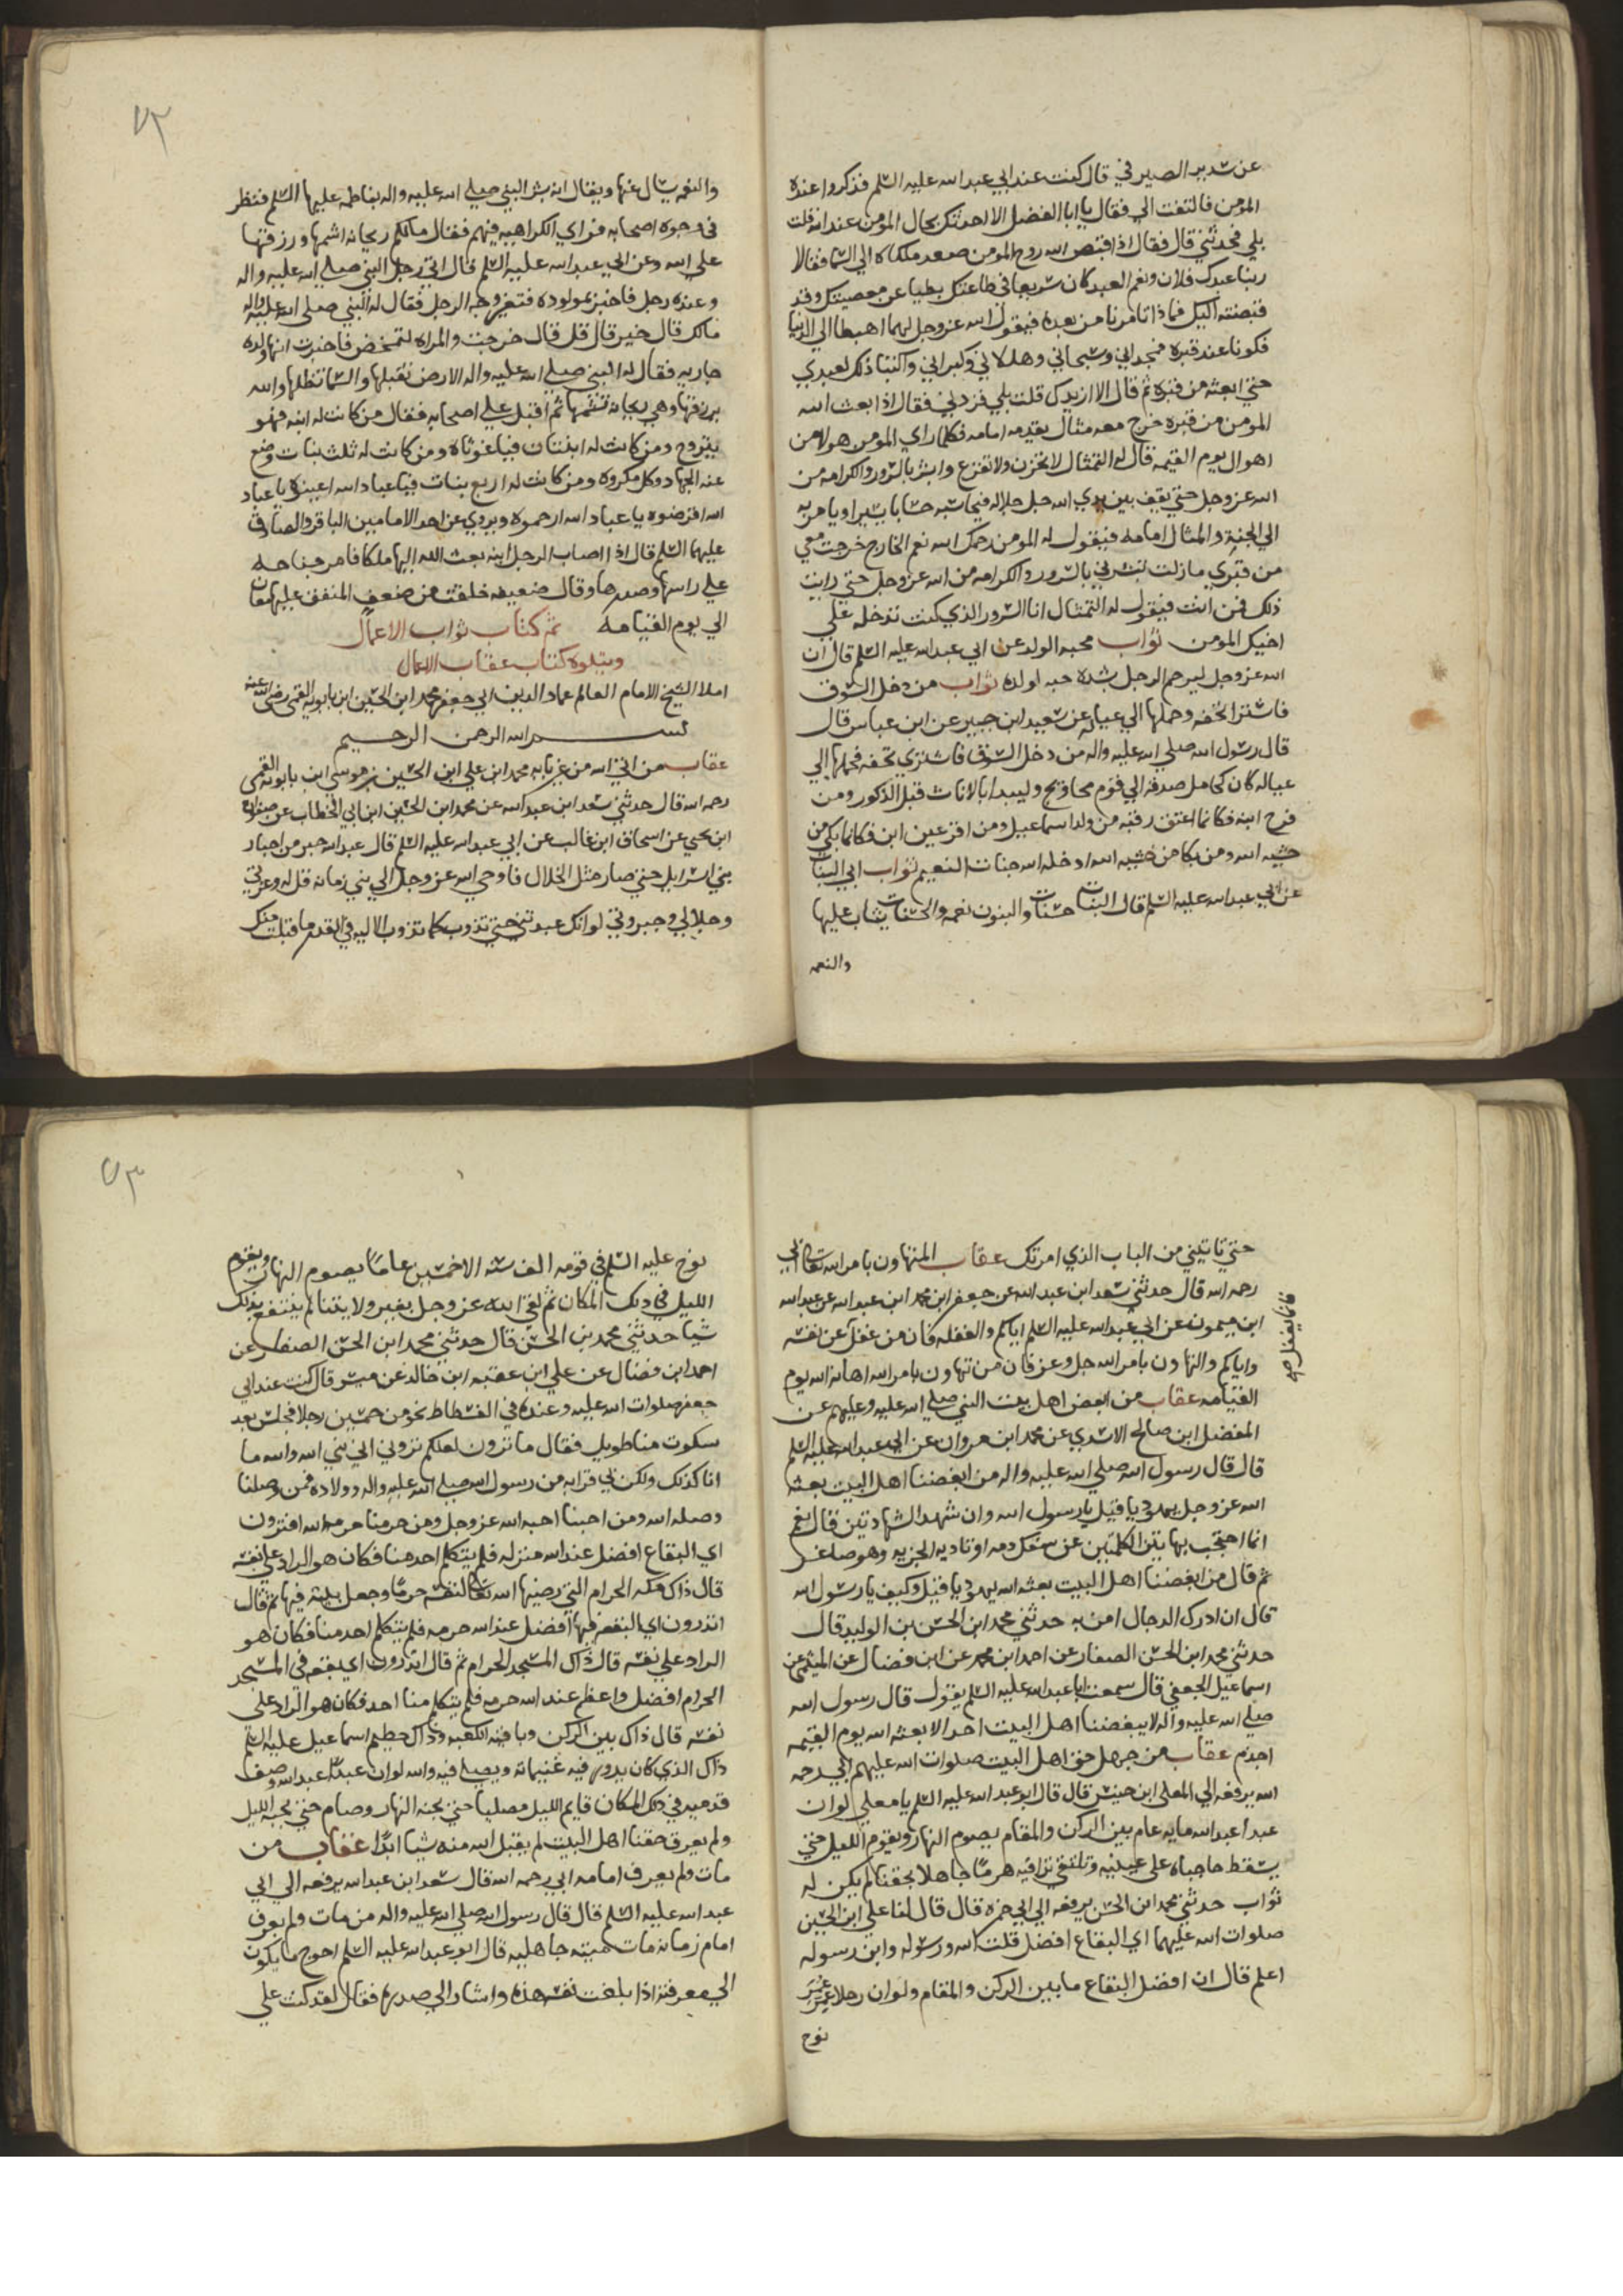 عن سدير الصيرفي قال كنت عند ابي عبد الله عليه السلم فذكروا عنده
المومن فالتفت الي فقال يا ابا الفضل الا احدثك بحال المومن عند الله قلت
بلي فحدثني قال فقال اذا قبض الله روح المومن صعد ملكاه الي السما فقالا
ربنا عبدك فلان ونعم العبد كان سريعا في طاعتك بطيا عن معصيتك وقد
قبضته اليك فماذا تامرنا من بعده فيقول الله عز وجل لهما اهبطا الي الدنيا
فكونا عند قبره فمجداني وسبحاني وهللاني وكبراني واكتبا ذلك لعبدي
حتي ابعثه من قبره ثم قال الا ازيدك قلت بلي فزدني فقال اذا بعث الله
المومن من قبره خرج معه مثال يقدمه امامه فكلما راي المومن هولا من
اهوال يوم القيمه قال له التمثال لا تحزن ولا تفزع وابشر بالسرور والكرامه من
الله عز وجل حتي يقف بين يدي الله جل جلاله فيحاسبه حسابا يسيرا ويامر به
الي الجنه والمثال امامه فيقول له المومن رحمك الله نعم الخارج خرجت معي
من قبري ما زلت تبشرني بالسرور والكرامه من الله عز وجل حتي رايت
ذلك فمن انت فيقول له التمثال انا السرور الذي كنت تدخله علي
اخيك المومن ثواب محبه الولد عن ابي عبد الله عليه السلم قال ان
الله عز وجل ليرحم الرجل بشده حبه لولده ثواب من دخل السوق
فاشترا تحفه وحملها الي عياله عن سعيد ابن جبير عن ابن عباس قال
قال رسول الله صلي الله عليه واله من دخل السوق فاشتري تحفه فحملها الي
عياله كان كحامل صدقه الي قوم محاويج وليبدا بالاناث قبل الذكور ومن
فرح ابنه فكانما اعتق رقبه من ولد اسماعيل ومن اقر عين ابن فكانما بكي من
خشيه الله ومن بكا من خشيه الله ادخله الله جنات النعيم ثواب ابي البنات
عن ابي عبد الله عليه السلم قال البنات حسنات والبنون نعمه والحسنات يثاب عليها
والنعمه
٧٢
والنعمه يسال عنها ويقال انه بشر النبي صلي الله عليه واله بفاطمه عليها السلم فنظر
في وجوه اصحابه فراي الكراهيه فيهم فقال مالكم ريحانه اشمها ورزقها
علي الله وعن ابي عبد الله عليه السلم قال اتي رجل النبي صلي الله عليه واله
وعنده رجل فاخبر بمولوده فتغير وجه الرجل فقال له النبي صلي الله عليه واله
مالك قال خير قال قل قال خرجت والمراه تمخض فاخبرت انها ولدة
جاريه فقال له النبي صلي الله عليه واله الارض تقبلها والسما تظلها والله
يرزقها وهي ريحانه تشمها ثم اقبل علي اصحابه فقال من كانت له ابنه فهو
يتزوح ومن كانت له ابنتان فيا غوثاه ومن كانت له ثلث بنات وضع
عنه الجهاد وكل مكروه ومن كانت له اربع بنات فيا عباد الله اعينوه يا عباد
الله اقرضوه يا عباد الله ارحموه ويروي عن احد الامامين الباقر والصادق
عليهما السلم قال اذا اصاب الرجل ابنه بعث الله اليها ملكا فامر جناحه
علي راسها وصدرها وقال ضعيفه خلقت من ضعف المنفق عليها معان
الي يوم القيامه تم كتاب ثواب الاعمال
ويتلوه كتاب عقاب الاعمال
املا الشيخ الامام العالم عماد الدين ابي جعفر محمد ابن الحسين ابن بابويه القمي رضي الله عنه
بسم الله الرحمن الرحيم
عقاب من اتي الله من غير بابه محمد ابن علي ابن الحسين بن موسي ابن بابويه القمي
رحمه الله قال حدثني سعد ابن عبد الله عن محمد ابن الحسين ابن ابي الخطاب عن صفوان
ابن يحيي عن اسحاق ابن غالب عن ابي عبد الله عليه السلم قال عبد الله حبر من احبار
بني اسرايل حتي صار مثل الخلال فاوحي الله عز وجل الي نبي زمانه قل له وعزتي
وجلالي وجبروتي لو انك عبدتني حتي تذوب كما تذوب الاليه في القدر ما قبلت منك
حتي تاتيني من الباب الذي امرتك عقاب المتهاون بامر الله تعالي ابي
رحمه الله قال حدثني سعد ابن عبد الله عن جعفر ابن محمد ابن عبد الله عن عبد الله
ابن ميمون عن ابي عبد الله عليه السلم اياكم والغفله فان من غفل عن نفسه
فانما يغفل
واياكم والتهاون بامر الله جل وعز فان من تهاون بامر الله اهانه الله يوم
القيامه عقاب من ابغض اهل بيت النبي صلي الله عليه وعليهم عن
المفضل ابن صالح الاسدي عن محمد ابن مروان عن ابي عبد الله عليه السلم
قال قال رسول الله صلي الله عليه واله من ابغضنا اهل البيت بعثه
الله عز وجل يهوديا قيل يا رسول الله وان شهد الشهادتين قال نعم
انما احتجب بهاتين الكلمتين عن سفك دمه او تاديه الجزيه وهو صاغر
ثم قال من ابغضنا اهل البيت بعثه الله يهوديا قيل وكيف يا رسول الله
قال ان ادرك الدجال امن به حدثني محمد ابن الحسن بن الوليد قال
حدثني محمد ابن الحسن الصفار عن احمد ابن محمد عن ابن فضال عن المثني عن
اسماعيل الجعفي قال سمعت ابا عبد الله عليه السلم يقول قال رسول الله
صلي الله عليه واله لا يبغضنا اهل البيت احد الا بعثه الله يوم القيمه
اجذم عقاب من جهل حق اهل البيت صلوات الله عليهم ابي رحمه
الله يرفعه الي المعلي ابن خنيس قال قال ابو عبد الله عليه السلم يا معلي لو ان
عبدا عبد الله مايه عام بين الركن والمقام يصوم النهار ويقوم الليل حتي
يسقط حاجباه علي عينيه وتلتقي تراقيه هرما جاهلا بحقنا لم يكن له
ثواب حدثني محمد ابن الحسن يرفعه الي ابي حمزه قال قال لنا علي ابن الحسين
صلوات الله عليهما اي البقاع افضل قلت الله ورسوله وابن رسوله
اعلم قال ان افضل البقاع ما بين الركن والمقام ولو ان رجلا عمر
نوح
٧٣
نوح عليه السلم في قومه الف سنه الا خمسين عاما يصوم النهار ويقوم
الليل في ذلك المكان ثم لقي الله عز وجل بغير ولايتنا لم ينتفع بذلك
شيا حدثني محمد بن الحسن قال حدثني محمد ابن الحسن الصفار عن
احمد ابن فضال عن علي ابن عقبه ابن خالد عن ميسر قال كنت عند ابي
جعفر صلوات الله عليه وعنده في الفسطاط نحو من خمسين رجلا فجلس بعد
سكوت منا طويل فقال ما ترون لعلكم تروني اني نبي الله والله ما
انا كذلك ولكن لي قرابه من رسول الله صلي الله عليه واله وولاده فمن وصلنا
وصله الله ومن احبنا احبه الله عز وجل ومن حرمنا حرمه الله افترون
اي البقاع افضل عند الله منزله فلم يتكلم احد منا فكان هو الراد علي نفسه
قال ذاك مكه الحرام التي رضيها الله تعالي لنفسه حرما وجعل بيته فيها ثم قال
اتدرون اي البقعه فيها افضل عند الله حرمه فلم يتكلم احد منا فكان هو
الراد علي نفسه قال ذاك المسجد الحرام ثم قال اتدرون اي بقعه في المسجد
الحرام افضل واعظم عند الله حرمه فلم يتكلم منا احد فكان هو الراد علي
نفسه قال ذاك بين الركن وبافيه الكعبه وذاك حطيم اسماعيل عليه السلم
ذاك الذي كان يدور فيه غنيماته ويصلي فيه والله لو ان عبدا عبد الله وصف
قدميه في ذلك المكان قايم الليل مصليا حتي يجنه النهار وصام حتي يجنه الليل
ولم يعرف حقنا اهل البيت لم يقبل الله منه شيا ابدا عقاب من
مات ولم يعرف امامه ابي رحمه الله قال سعد ابن عبد الله يرفعه الي ابي
عبد الله عليه السلم قال قال رسول الله صلي الله عليه واله من مات ولم يعرف
امام زمانه مات ميته جاهليه قال ابو عبد الله عليه السلم احوج ما يكون
الي معرفته اذا بلغت نفسه هذه واشار الي صدره فقال لقد كنت علي